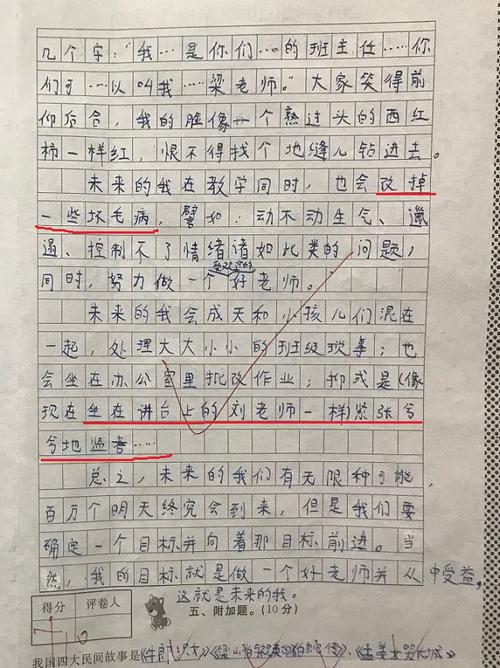 几个字:“我…是你们…的班主任…你
们可…以叫我…梁老师。”大家笑得前
仰后合,我的脸像一个熟过头的西红
柿一样红,恨不得找个地缝儿钻进去。
未来的我在教学同时,也会改掉
一些坏毛病,譬如:动不动生气、邋
遢、控制不了情绪诸如此类的问题,
同时,努力做一个受欢迎的好老师。
未来的我会成天和小孩儿们混在
一起,处理大大小小的班级琐事;也
会坐在办公室里批改作业;抑或是(像
现在坐在讲台上的刘老师一样)紧张兮
兮地监考……
总之,未来的我们有无限种可能,
百万个明天终究会到来,但是我们要
确定一个目标并向着那目标前进。当
然,我的目标就是做一个好老师并从中受益。
这就是未来的我。
得分 评卷人
五、附加题。(10分)
我国四大民间故事是《牛郎织女》《梁山伯与祝英台》《白蛇传》、《孟姜女哭长城》